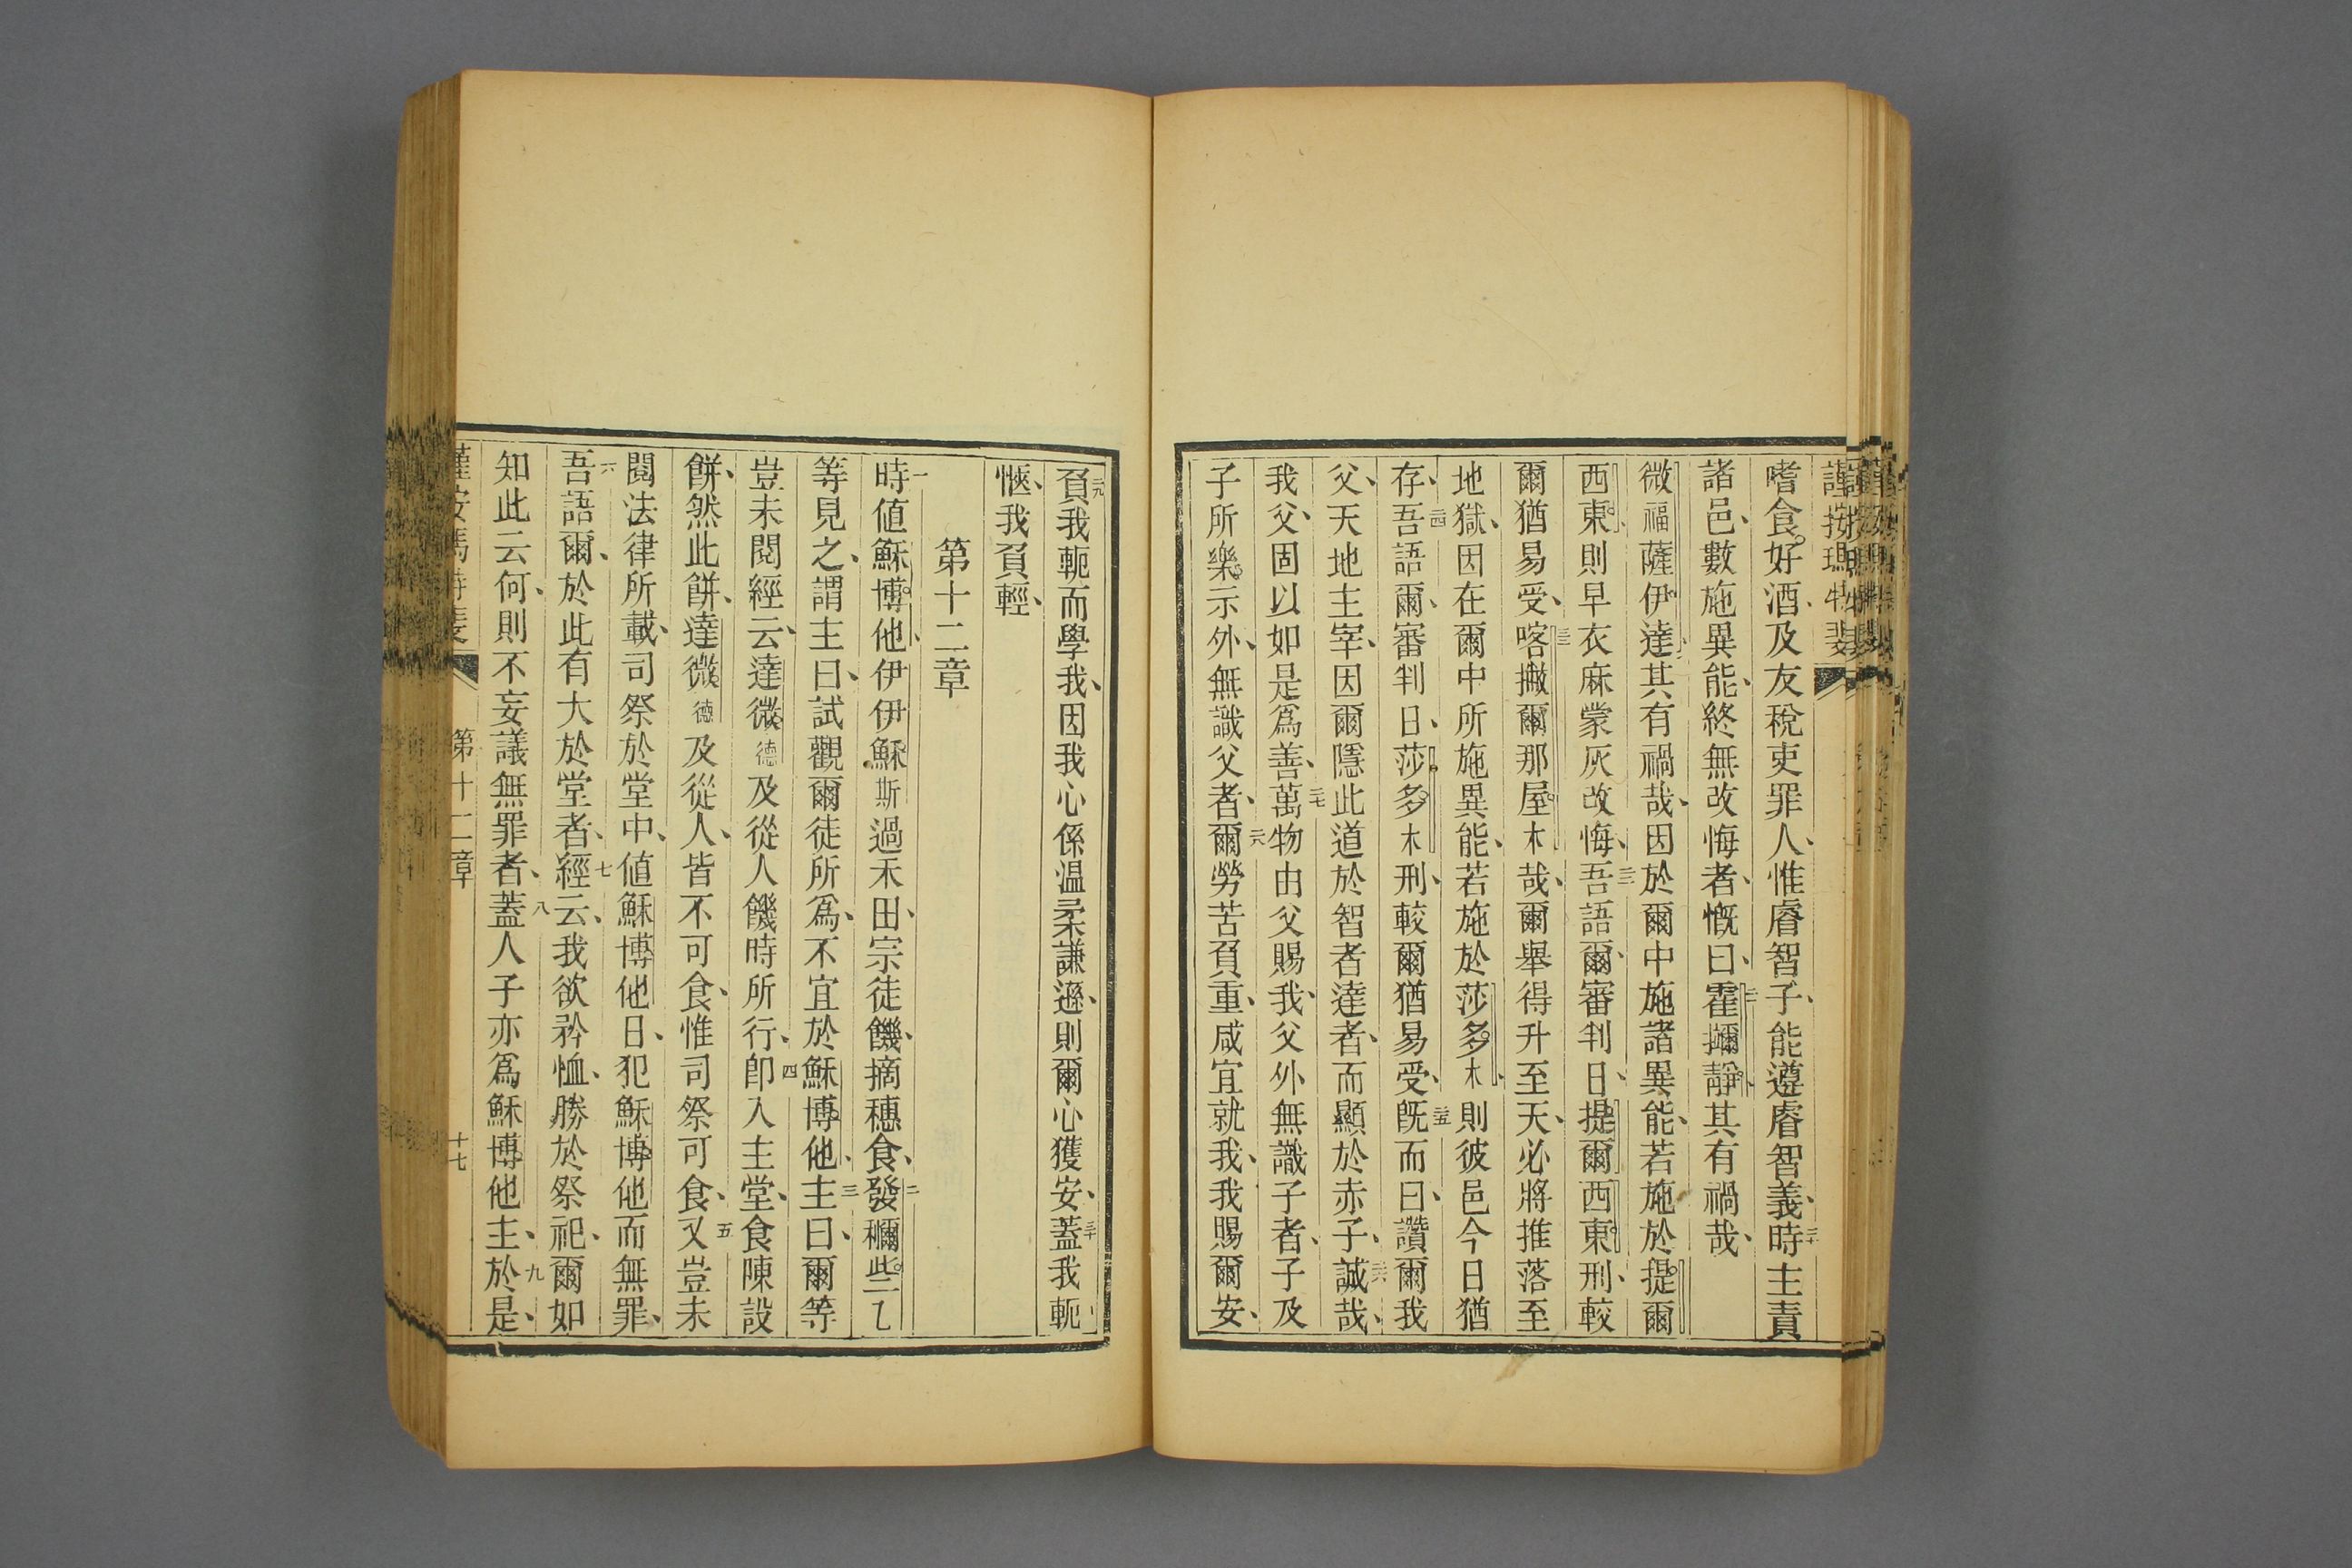 謹按瑪特斐
嗜食好酒、及友稅吏罪人、惟睿智子、能遵睿智義、二十時主責
諸邑、數施異能、終無改悔者、慨曰、二一霍𤫩靜、其有禍哉、
微福薩伊達、其有禍哉、因於爾中施諸異能、若施於提爾
西東、則早衣麻蒙灰改悔、二二吾語爾、審判日、提爾西東刑、較
爾猶易受、二三喀撇爾那屋木哉、爾舉得升至天、必將推落至
地獄、因在爾中所施異能、若施於莎多木、則彼邑今日猶
存、二四吾語爾、審判日、莎多木刑、較爾猶易受、二五旣而曰、讚爾我
父、天地主宰、因爾隱此道於智者達者、而顯於赤子、二六誠哉、
我父、固以如是爲善、二七萬物由父賜我、父外無識子者、子及
子所樂示外、無識父者、二八爾勞苦負重、咸宜就我、我賜爾安、
二九負我軛而學我、因我心係温柔謙遜、則爾心獲安、三十蓋我軛
愜、我負輕、
第十二章
一時値穌博他、伊伊穌斯過禾田、宗徒饑、摘穗食、二發𥡝些乙
等見之、謂主曰、試觀爾徒所爲、不宜於穌博他、三主曰、爾等
豈未閱經云、達微德及從人饑時所行、四卽入主堂、食陳設
餅、然此餅、達微德及從人、皆不可食、惟司祭可食、五又豈未
閱法律所載、司祭於堂中、値穌博他日、犯穌博他而無罪、
六吾語爾、於此有大於堂者、七經云、我欲矜恤、勝於祭祀、爾如
知此云何、則不妄議無罪者、八蓋人子亦爲穌博他主、九於是、
謹按馬特斐 第十二章 十七